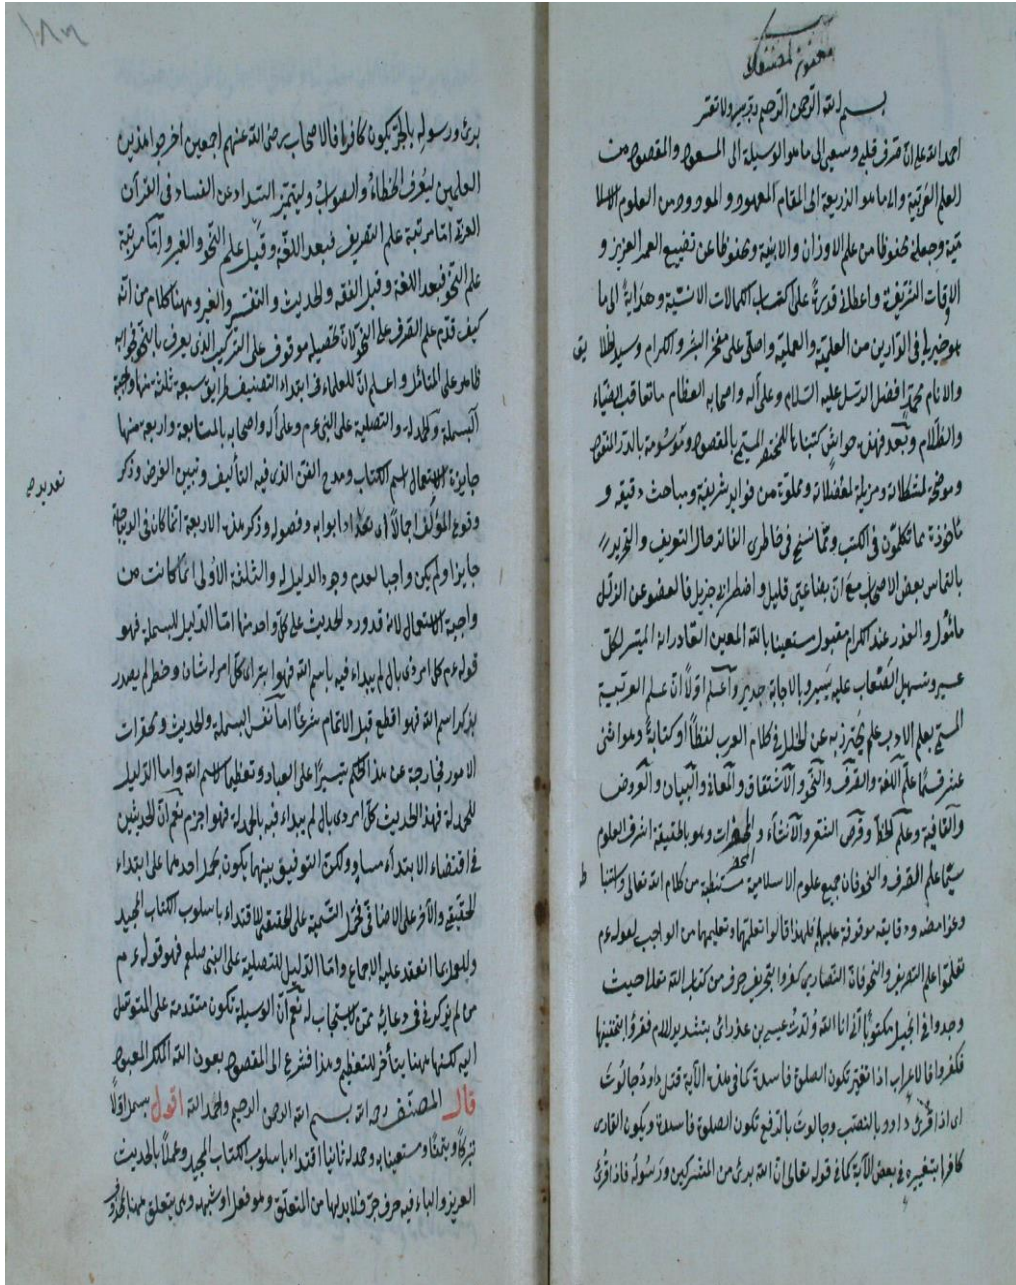 بسم الله الرحمن الرحيم رب يسر ولا تعسر
احمد الله على ان صرف قلبى وسعيى الى ما هو الوسيلة الى المسعود والمقصود من
العلم العربية والى ما هو الذريعة الى المقام المعهود والموعود من العلوم الاسلا
مية وجعلنى محظوظا من علم الاوزان والابنية ومحفوظا عن تضييع العمر العزيز و
الاوقات الشريفة واعطانى قدرة على اكتساب الكمالات الانسية وهداية الى ما
هو خير لى فى الدارين من العلمية والعملية واصلى على مفخر البشر والكرام وسيد الخلا
يق
والانام محمد افضل الرسل عليه السلام وعلى آله واصحابه العظام ما تعاقب الضياء
والظلام وبعد فهذه حواش كتبناها للمختصر المسمى بالمقصود وموسومة بالدر المنقود
وموضحة لمشكلاته ومزيلة لمعضلاته ومملوة من فوايد شريفة ومباحث دقيقة و
مأخوذة مما تكلمون فى الكتب ومما نسخ فى خاطرى الفاتر حال التعريف والتحرير
بالتماس بعض الاصحاب مع ان بضاعتى قليل واضطرابى جزيل فالعفو عن الزلل
مأمول والعذر عند الكرام مقبول مستعينا بالله المعين القادر انه الميسر لكل
عسير وتسهيل الصعاب عليه يسير وبالاجابة جدير واعلم اولا ان علم العربية
المسمى بعلم الادب علم يحترز به عن الخلل فى كلام العرب لفظا او كتابة وهو اثنى
عشر قسما علم اللغة والصرف والنحو والاشتقاق والمعانى والبيان والعروض
والقافية وعلم الخط وقرض الشعر والانشاء والمحاضرات وهو بالحقيقة اشرف العلوم
سيما علم الصرف والنحو فان جميع علوم الاسلامية مستنبطة من كلام الله تعالى واستنبا
ط
وغوامضه ودقايقه موقوفة عليهما فلهذا قالوا تعلمها وتعليمها من الواجب لقوله عم
تعلموا علم التصريف والنحو فان النصارى كفروا بتحريف حرف من كتاب الله تعالى حيث
وجدوا فى انجيل مكتوبا انى انا الله ولدت عيسى بن عذرائى بتشديد اللام فقرؤا بتخفيفها
فكفروا فالاعراب اذا تغير تكون الصلوة فاسدة كما فى هذه الآية قتل داود جالوت
اى اذا قرئ داود بالنصب وجالوت بالرفع تكون الصلوة فاسدة ويكون القارى
كافرا بتغييره فى بعض الآية كما فى قوله تعالى ان الله برئ من المشركين ورسوله فاذا قرئ
١٨٢
برئ ورسوله بالجر يكون كافرا فالاصحاب رضى الله عنهم اجمعين اخرجوا هذين
العلمين ليعرف الخطاء والصواب وليتميز السداد عن الفساد فى القرآن
العزة اما مرتبة علم التصريف فبعد اللغة وقبل علم النحو والغير واما مرتبة
علم النحو فبعد اللغة وقبل الفقه والحديث والتفسير والغير وههنا كلام من انه
كيف قدم علم الصرف على النحو لان تحصيله موقوف على التركيب الذى يعرف بالنحو فجوابه
ظاهر على المتأمل واعلم ان للعلماء فى ابتداء التصنيف طرايق سبعة ثلثة منها واجبة
البسملة والحمدلة والتصلية على النبى عم وعلى آله واصحابه بالمتابعة واربعة منها
جايزة الاستعمال اسم الكتاب ومدح الفن الذى فيه التأليف وتبيين الغرض وذكر
وقوع المؤلف اجمالا اى تعداد ابوابه وفصوله وذكر هذه الاربعة انما كان فى الديباجة
جايزا ولم يكن واجبا لعدم وجود الدليل له والثلثة الاولى انما كانت من
واجبة الاستعمال لانه قد ورد الحديث على كل واحد منها اما الدليل للبسملة فهو
قوله عم كل امر ذى بال لم يبداء فيه باسم الله فهو ابتر اى كل امر له شان وخطر لم يصدر
بذكر اسم الله فهو اقطع قبل الاتمام شرعا اما نفس البسملة والحديث ومحقرات
الامور فخارجة عن هذا الحكم تيسيرا على العباد وتعظيما لاسم الله واما الدليل
للحمدلة فهذا الحديث كل امر ذى بال لم يبداء فيه بالحمدلة فهو اجزم نعم ان الحديثين
فى اقتضاء الابتداء مساو ولكن التوفيق بينهما يكون بحمل احدهما على ابتداء
الحقيقى والآخر على الاضافى فحمل التسمية على الحقيقى للاقتداء باسلوب الكتاب المجيد
وللعمل بما انعقد عليه الاجماع واما الدليل للتصلية على النبى صلعم فهو قوله عم
من لم يذكرنى فى دعائه ممن لا يستجاب له نعم ان الوسيلة تكون متقدمة على المتوسل
اليه لكنها ههنا يتأخر للتعظيم وهذا فشرع الى المقصود بعون الله الملك المعبود
قال المصنف رحه الله بسم الله الرحمن الرحيم والحمد لله اقول بسمل اولا
تبركا وتيمنا ومستعينا به وحمدله ثانيا اقتداء باسلوب الكتاب المجيد وعملا بالحديث
العزيز والباء فيه حرف جر فلا بد لها من المتعلق وهو فعل او شبهه وهى يتعلق ههنا بمحذوف